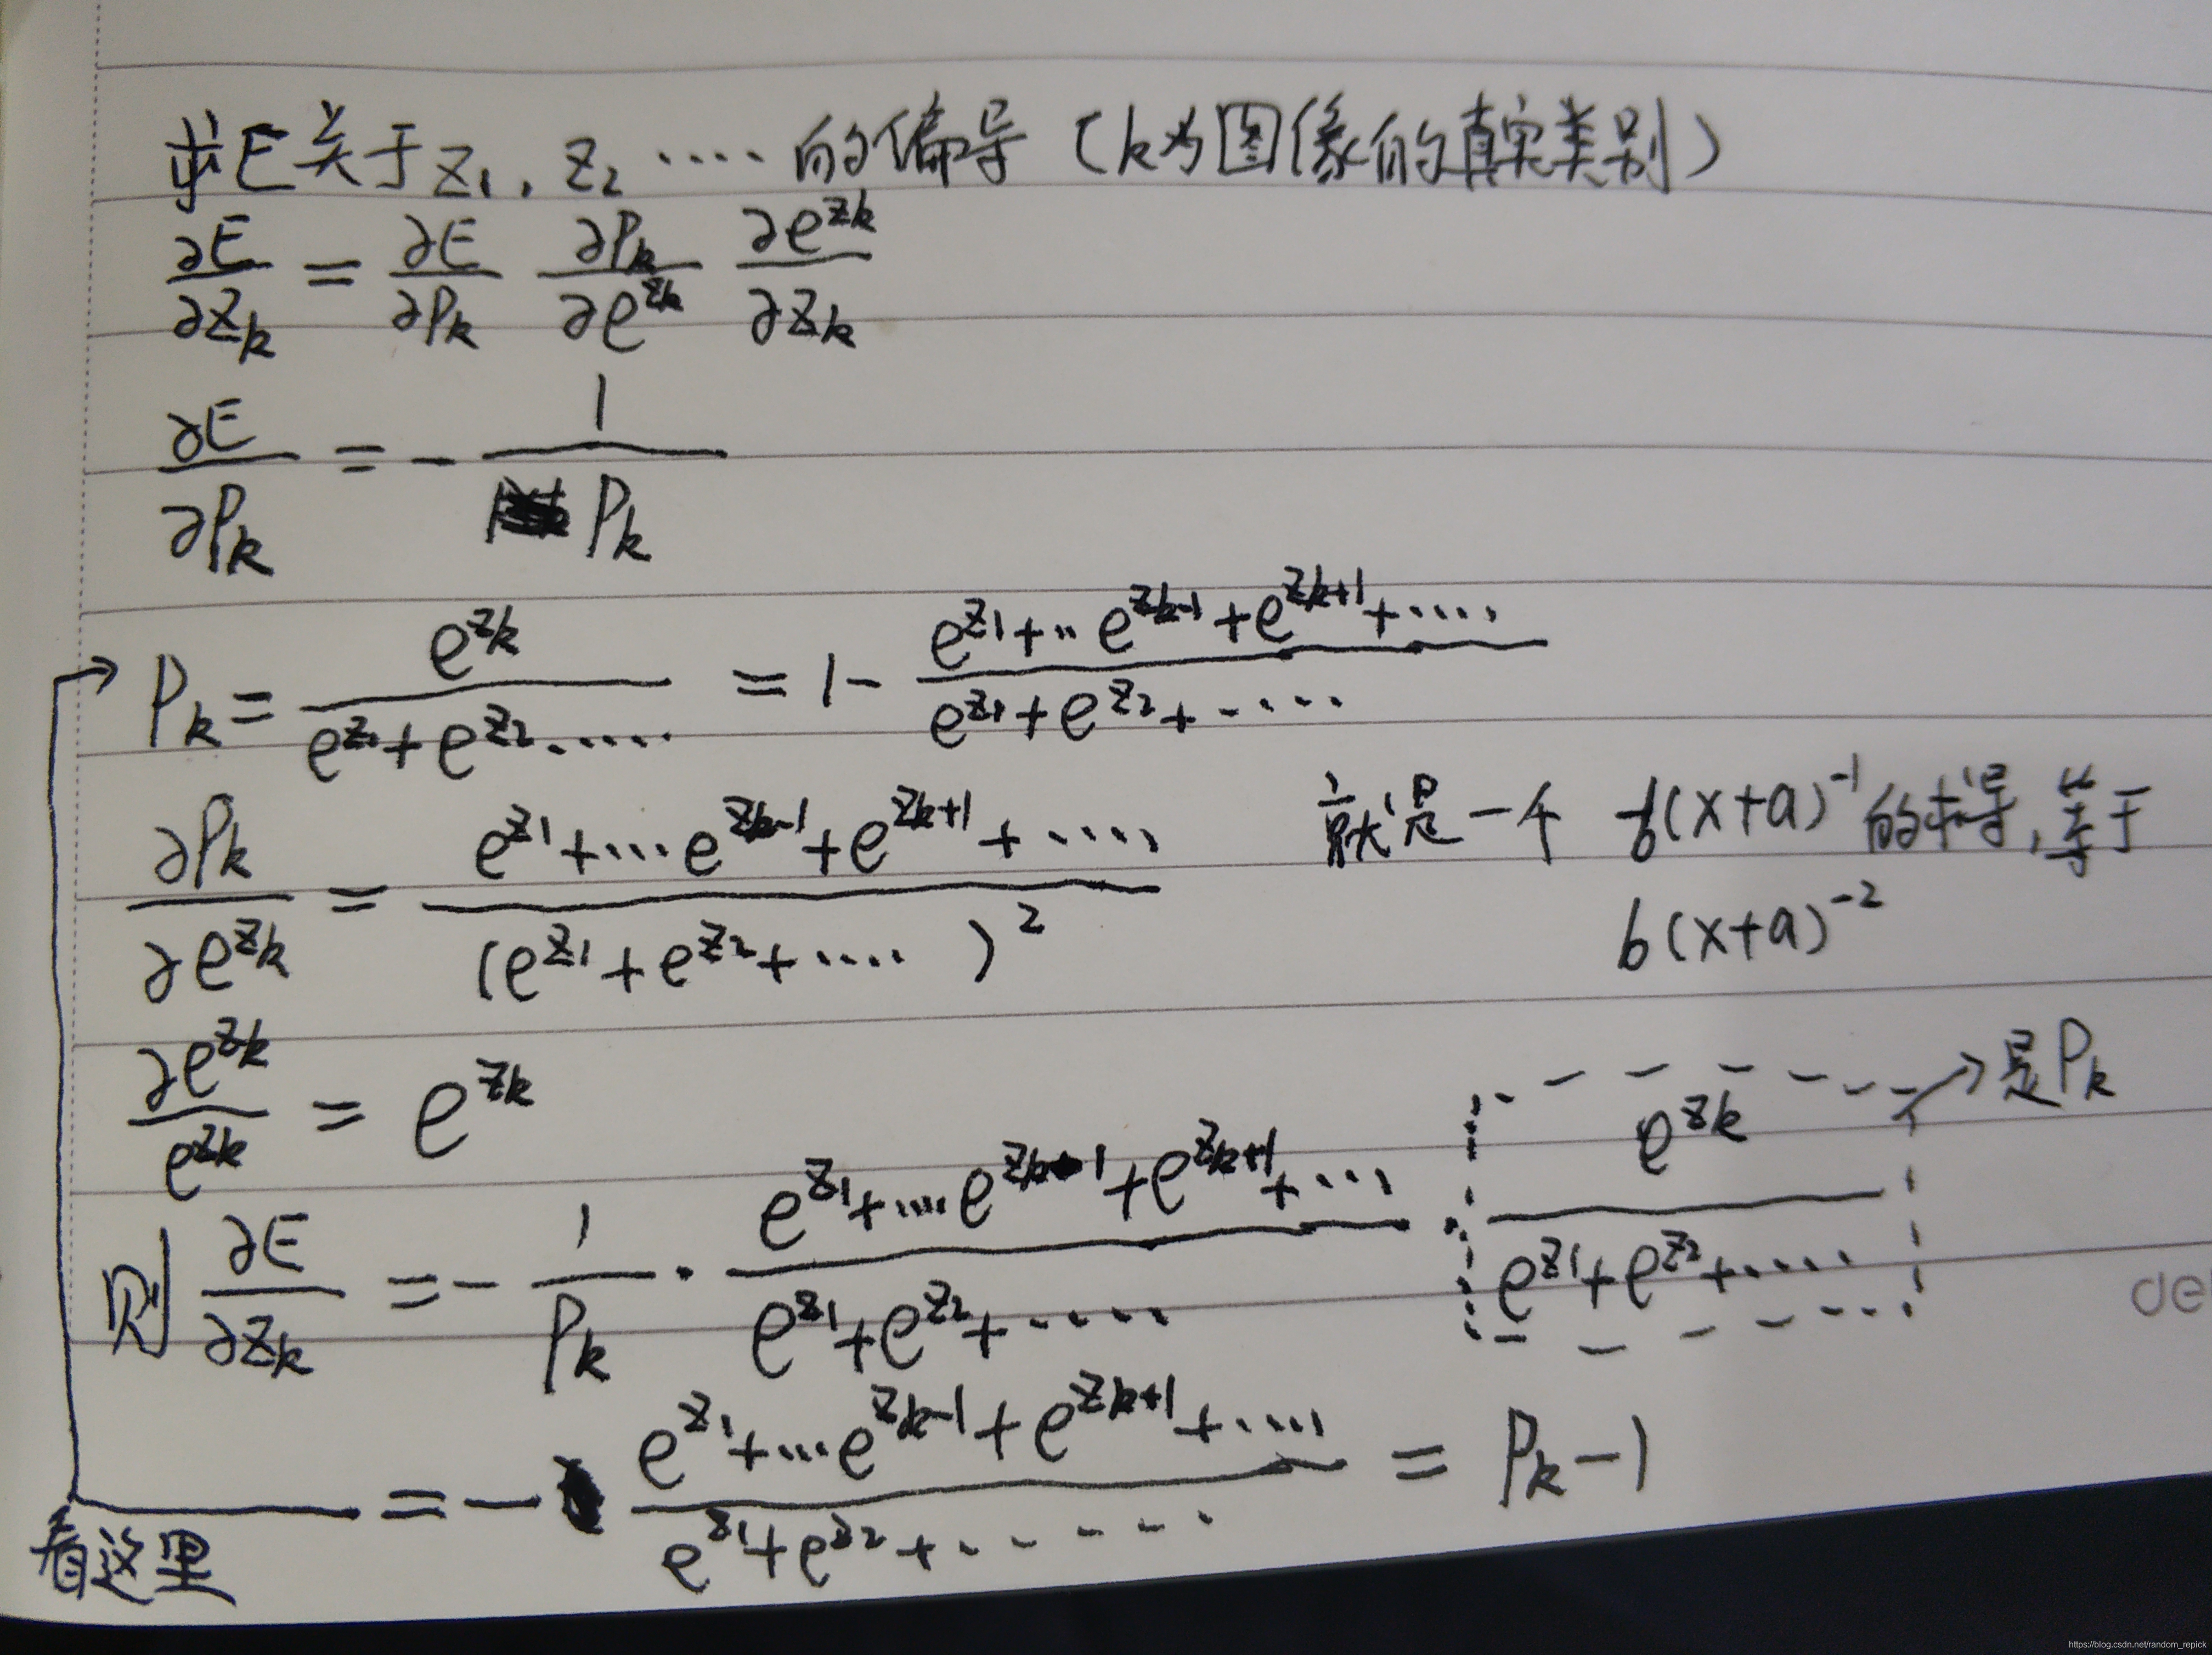 求E关于z₁, z₂ ····的偏导 (k为图像的真实类别)
∂E/∂z_k = ∂E/∂P_k ∂P_k/∂e^{z_k} ∂e^{z_k}/∂z_k
∂E/∂P_k = - 1/P_k
P_k = e^{z_k}/(e^{z_1}+e^{z_2}·····) = 1- (e^{z_1}+··e^{z_{k-1}}+e^{z_{k+1}}+····)/(e^{z_1}+e^{z_2}+·····)
∂P_k/∂e^{z_k} = (e^{z_1}+···e^{z_{k-1}}+e^{z_{k+1}}+····)/(e^{z_1}+e^{z_2}+····)² 就是一个 -b(x+a)^{-1}的求导,等于
b(x+a)^{-2}
∂e^{z_k}/e^{z_k} = e^{z_k}
则 ∂E/∂z_k = - 1/P_k · (e^{z_1}+····e^{z_{k-1}}+e^{z_{k+1}}+···)/(e^{z_1}+e^{z_2}+·····) · e^{z_k}/(e^{z_1}+e^{z_2}+·····) → 是P_k
= - (e^{z_1}+···e^{z_{k-1}}+e^{z_{k+1}}+····)/(e^{z_1}+e^{z_2}+······) = P_k-1
看这里
de
https://blog.csdn.net/random_repick